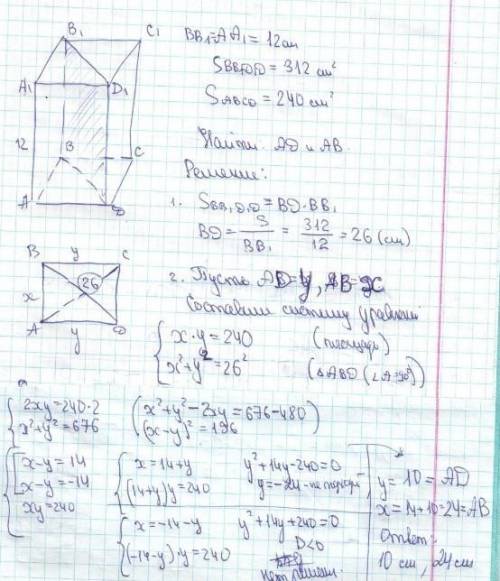 B₁ C₁
A₁ D₁
12
B C
A D
BB₁=AA₁=12см
S BB₁D₁D=312 см²
S ABCD=240 см²
Найти AD и AB.
Решение:
1. S BB₁D₁D=BD·BB₁
BD=S/BB₁=312/12=26(см)
B y C
x 26
A y D
2. Пусть AD=y, AB=x
Составим систему уравн
{ x·y=240 (площадь)
x²+y²=26² (△ABD(∠A=90°))
{ 2xy=240·2 (x²+y²-2xy=676-480)
x²+y²=676 (x-y)²=196
[ x-y=14
x-y=-14
xy=240
{ x=14+y y²+14y-240=0
(14+y)y=240 y=-24-не подходит
{ x=-14-y y²+14y+240=0
(-14-y)·y=240 D<0
нет решен.
y=10=AD
x=14+10=24=AB
Ответ:
10 см, 24 см